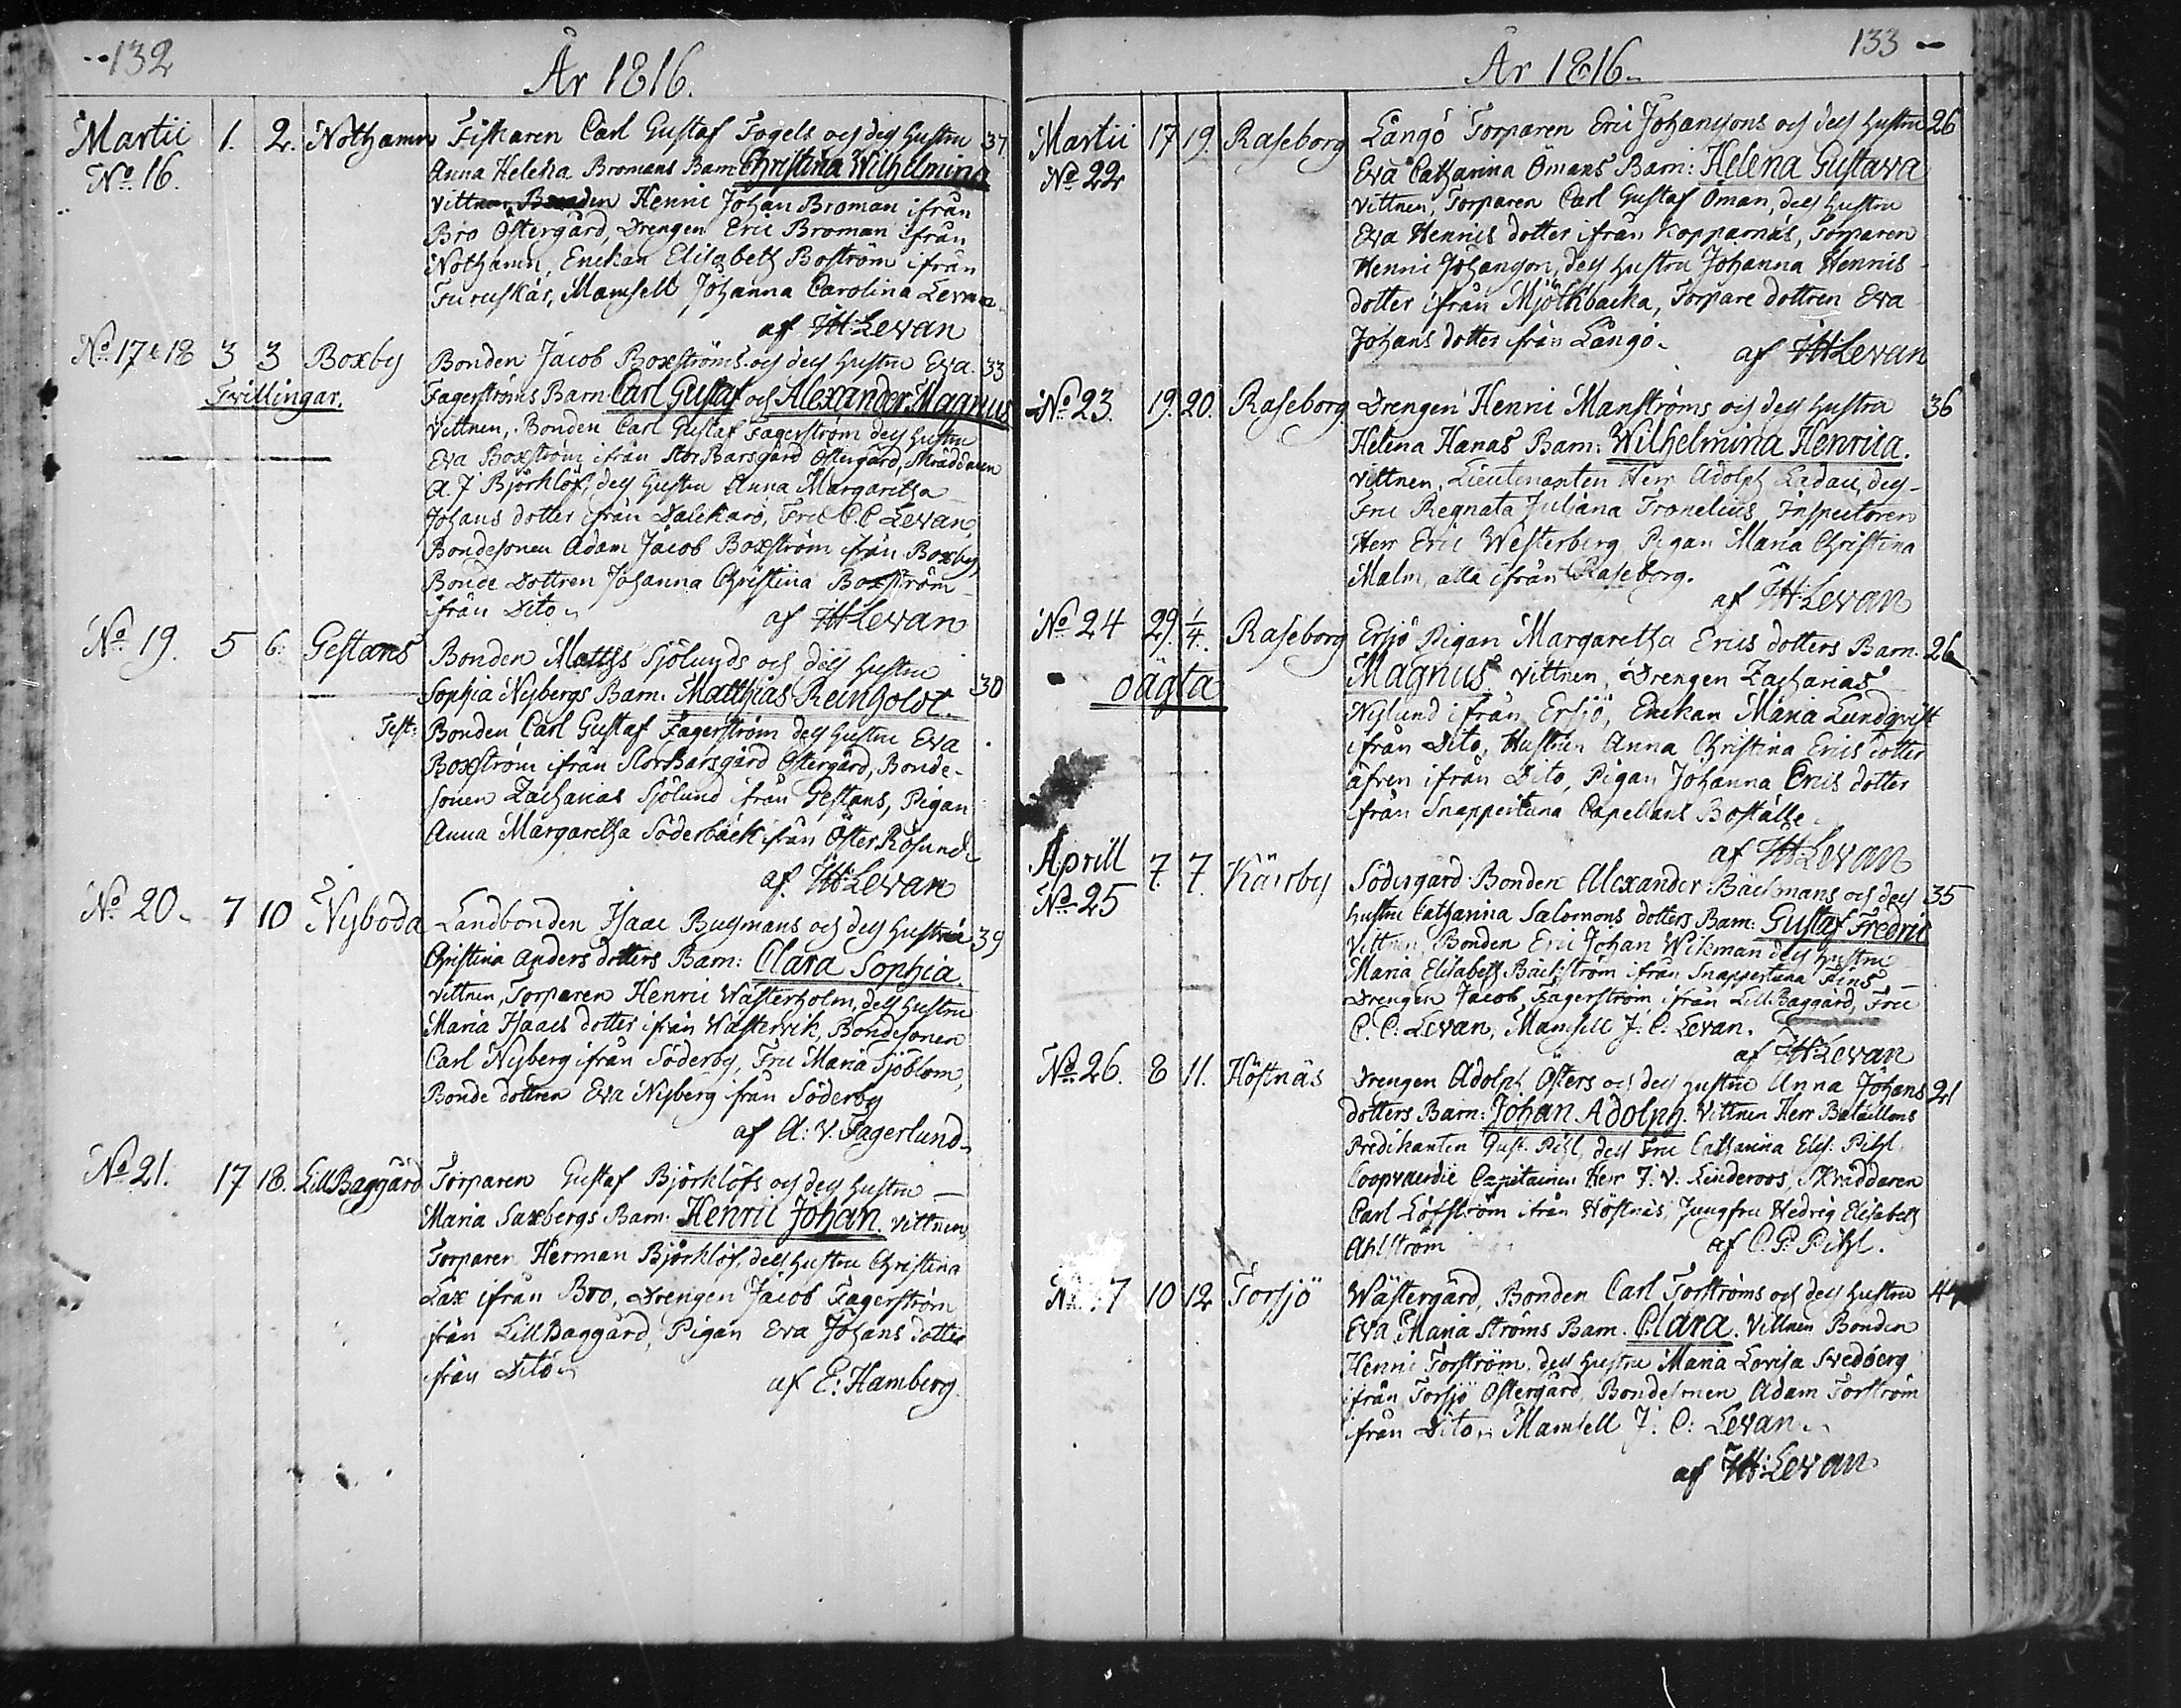 132
År 1816.
Martii 1. 2. Nothamn Fiskaren Carl Gustaf Fogels och dess hustru 37
No 16. Anna Helena Bromans Barn Christina Wilhelmina
Henric Johan Broman ifrån
Bro Östergård, Drengen Eric Broman ifrån
Nothamn, Enckan Elisabeth Boström ifrån
Furuskär, Mamsell Johanna Carolina Levan
af IH: Levan
No 17 & 18 3 3 Boxby Bonden Jacob Boxströms och dess hustru Eva 33
Tvillingar. Fagerströms Barn Carl Gustaf och Alexander Magnus
Vittnen, Bonden Carl Gustaf Fagerström dess hustru
Eva Boxström ifrån StorBarsgård Östergård, Skräddaren
A. J Björklöf, dess hustru Anna Margaretha
Johans dotter ifrån Dalckarö, Fru C. C Levan,
Bondesonen Adam Jacob Boxström ifrån Boxby,
Bonde Dottren Johanna Christina Boxström
ifrån Dito
af IH: Levan
No 19. 5 6. Gestans Bonden Matths Sjölunds och dess hustru
Sophia Nybergs Barn. Matthias Reinholdt. 30
Test: Bonden Carl Gustaf Fagerström dess hustru Eva
Boxström ifrån StorBarsgård Östergård, Bonde-
sonen Zacharias Sjölund ifrån Gestans, Pigan
Anna Margaretha Söderbäck ifrån Öster Rösund
af IH: Levan
No 20. 7 10 Nyboda Landbonden Isaac Bugmans och dess hustru 39
Christina Anders dotters Barn: Clara Sophia.
Vittnen, Torparen Henric Wästerholm, dess hustru
Maria Isaacs dotter ifrån Wästervik, Bondesonen
Carl Nyberg ifrån Söderby, Fru Maria Sjöblom,
Bonde dottren Eva Nyberg ifrån Söderby
af A: V. Fagerlund
No 21. 17 18. LillBaggård Torparen Gustaf Björklöfs och dess hustru
Maria Saxbergs Barn: Henric Johan. Vittnen,
Torparen Herman Björklöf, dess hustru Christina
Lax ifrån Bro, Drengen Jacob Fagerström
från LillBaggård, Pigan Eva Johans dotter
från Dito
af E: Hamberg.
133
År 1816.
Martii 17 19. Raseborg Långö Torparen Eric Johanssons och dess hustru 26
No 22 Eva Catharina Ömans Barn: Helena Gustava
Vittnen, Torparen Carl Gustaf Öman, dess hustru
Eva Henrics dotter ifrån Kopparnäs, Torparen
Henric Johansson, dess hustru Johanna Henrics
dotter ifrån Mjölkbacka, Torpare dottren Eva
Johans dotter från Långö.
af IH: Levan
No 23. 19. 20. Raseborg. Drengen Henric Manströms och dess hustru 36
Helena Hanås Barn: Wilhelmina Henrica.
Vittnen, Lieutenanten Herr Adolph Ladau, dess
Fru Regnata Juliana Tronelius, Inspectoren
Herr Eric Westerberg, Pigan Maria Christina
Malm, alla ifrån Raseborg.
af IH: Levan
No 24 29. 1/4. Raseborg Ersjö Pigan Margaretha Erics dotters Barn. 26
oägta Magnus Vittnen, Drengen Zacharias
Nylund ifrån Ersjö, Enckan Maria Lundqvist
ifrån Dito, Hustrun Anna Christina Erics dotter
äfven ifrån Dito, Pigan Johanna Erics dotter
ifrån Snappertuna Capellans Boställe.
af IH: Levan
Aprill 7. 7. Kärrby Södergård Bonden Alexander Bäckmans och dess 35
No 25 hustru Catharina Salomons dotters Barn: Gustaf Fredric
Vittnen, Bonden Eric Johan Wikman dess hustru
Maria Elisabeth Bäckström ifrån Snappertuna Fins
Drengen Jacob Fagerström ifrån LillBaggård, Fru
C. C: Levan, Mamsell J: C: Levan.
af IH: Levan
No 26. 8 11. Höstnäs Drengen Adolph Östers och dess hustru Anna Johans 21
dotters Barn: Johan Adolph. Vittnen Herr Bataillons
Predikanten Gust. Pihl, dess Fru Catharina Elis: Pihl,
Coopvaerdie Capitainen Herr J. V. Linderoos, Skräddaren
Carl Löfström ifrån Höstnäs, Jungfru Hedvig Elisabeth
Ahlström af C. G. Pihl.
7 10 12 Torsjö Wästergård, Bonden Carl Torströms och dess hustru 44
Eva Maria Ströms Barn. Clara. Vittnen Bonden
Henric Torström dess hustru Maria Lovisa Svedberg
ifrån Torsjö Östergård, Bondesonen Adam Torström
ifrån Dito, Mamsell J: C: Levan
af IH: Levan